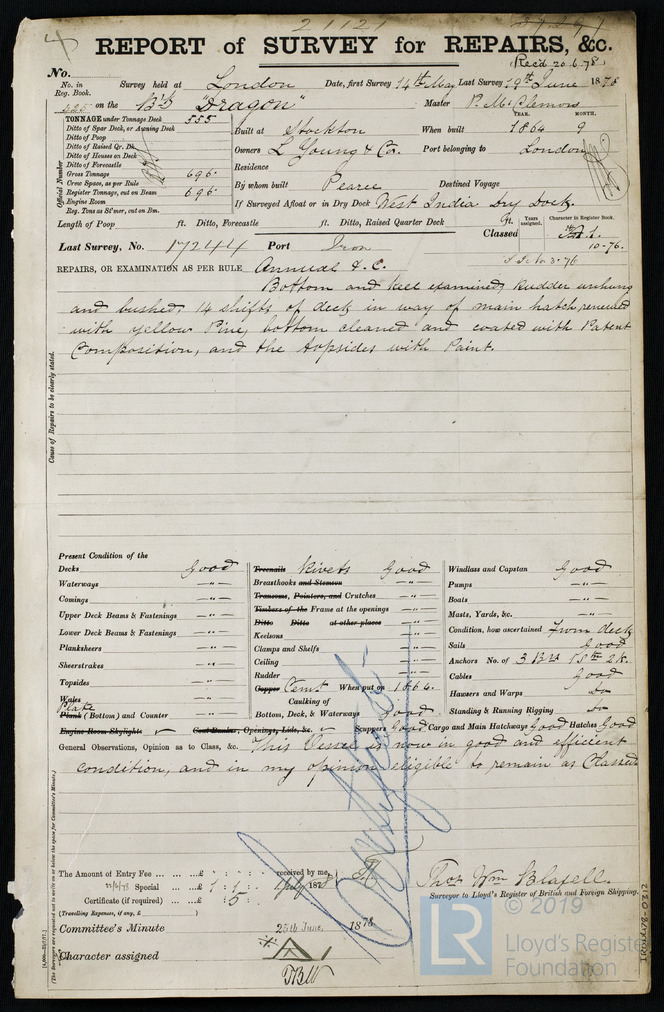 21121
REPORT of SURVEY for REPAIRS, &c.
(Rec'd 20.6.78)
No.
No. in Reg. Book. Survey held at London Date, first Survey 14th May Last Survey 19th June 1878
525 on the "Dragon" Master
TONNAGE under Tonnage Deck 555
Ditto of Spar Deck, or Awning Deck
Ditto of Poop
Ditto of Raised Qr. Dk.
Ditto of Houses on Deck
Ditto of Forecastle
Gross Tonnage 696.
Crew Space, as per Rule
Register Tonnage, cut on Beam 696.
Engine Room
Reg. Tons as St'mer, cut on Bm.
Official Number
Built at Stockton When built 1864 9
YEAR. MONTH.
Owners L Young & Co. Port belonging to London
Residence
By whom built Pearse Destined Voyage
If Surveyed Afloat or in Dry Dock West India Dry Dock.
Length of Poop ft. Ditto, Forecastle ft. Ditto, Raised Quarter Deck ft.
Classed Years assigned. Character in Register Book.
A.1.
10-76.
Last Survey, No. 17244 Port Iron
3-76
REPAIRS, OR EXAMINATION AS PER RULE Annual &.C.
Bottom and keel examined, Rudder unhung
and bushed, 14 shifts of deck in way of main hatch, renewed
with yellow Pine, bottom cleaned and coated with Patent
Composition, and the topsides with Paint.
Cause of Repairs to be clearly stated.
Present Condition of the
Decks Good
Waterways -"-
Comings -"-
Upper Deck Beams & Fastenings -"-
Lower Deck Beams & Fastenings -"-
Planksheers -"-
Sheerstrakes -"-
Topsides -"-
Wales -"-
Plate
Plank (Bottom) and Counter -"-
Engine Room Skylights Coal Bunker, Openings, Lids, &c.
Treenails Rivets Good
Breasthooks and Stemson -"-
Transoms, Pointers, and Crutches -"-
Timbers of the Frame at the openings -"-
Ditto Ditto at other places -"-
Keelsons -"-
Clamps and Shelfs -"-
Ceiling -"-
Rudder -"-
Copper Cemt When put on 1864.
Caulking of
Bottom, Deck, & Waterways Good
Scuppers Good Cargo and Main Hatchways Good Hatches Good
Windlass and Capstan Good
Pumps -"-
Boats -"-
Masts, Yards, &c. -"-
Condition, how ascertained From deck
Sails Good
Anchors No. of 3 B 1 St 2 K.
Cables Good
Hawsers and Warps Do
Standing & Running Rigging Do
General Observations, Opinion as to Class, &c. This Vessel is now in good and efficient
condition, and in my opinion eligible to remain as Classed
The Amount of Entry Fee ... £ : : received by me,
22/6/78 Special ... £ 1 : 1 : July 1878
Certificate (if required) ... £ : 5 :
(Travelling Expenses, if any, £ )
Thos Wm Blafell.
Surveyor to Lloyd's Register of British and Foreign Shipping.
Committee's Minute 25th June, 1878
Character assigned
(The Surveyors are requested not to write on or below the space for Committee's Minute.)
© 2019
LR
Lloyd's Register
Foundation